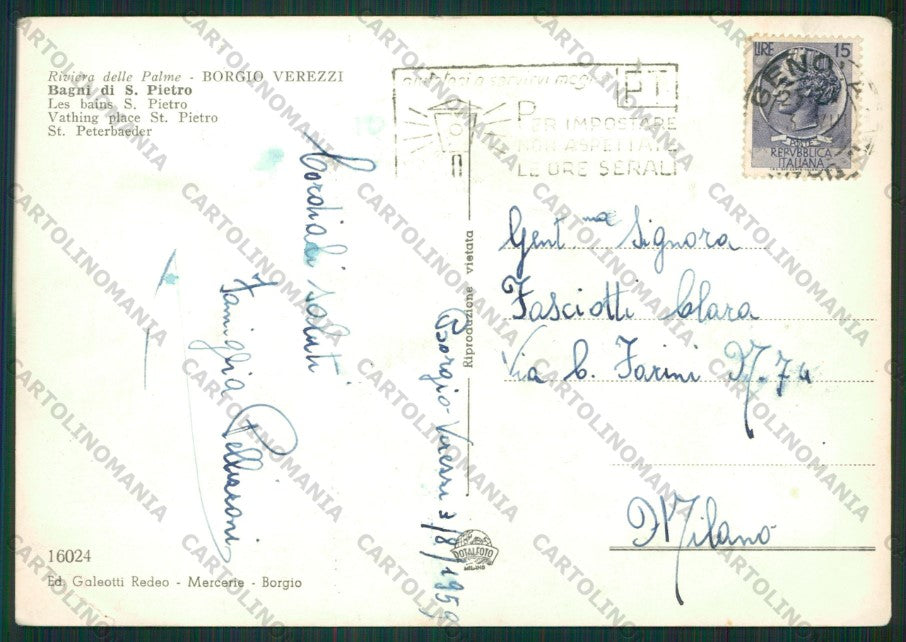 Riviera delle Palme - BORGIO VEREZZI
Bagni di S. Pietro
Les bains S. Pietro
Vathing place St. Pietro
St. Peterbaeder
PT
PER IMPOSTARE
NON ASPETTARE
LE ORE SERALI
LIRE 15
REPVBBLICA
ITALIANA
GENOVA
Cordiali saluti
Famiglia
Borgio-Verezzi 3/8/1959
Riproduzione vietata
Gent.ma Signora
Fasciotti Clara
Via C. Farini N. 74
Milano
ROTALFOTO
MILANO
16024
Ed. Galeotti Redeo - Mercerie - Borgio
CARTOLINOMANIA